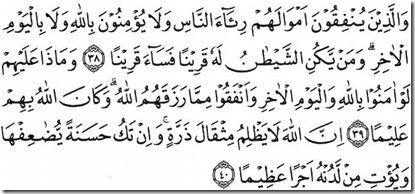 وَالَّذِيْنَ يُنْفِقُوْنَ اَمْوَالَهُمْ رِئَاۤءَ النَّاسِ وَلَا يُؤْمِنُوْنَ بِاللّٰهِ وَلَا بِالْيَوْمِ
الْاٰخِرِ ۗ وَمَنْ يَّكُنِ الشَّيْطٰنُ لَهٗ قَرِيْنًا فَسَاۤءَ قَرِيْنًا ﴿٣٨﴾ وَمَاذَا عَلَيْهِمْ
لَوْ اٰمَنُوْا بِاللّٰهِ وَالْيَوْمِ الْاٰخِرِ وَاَنْفَقُوْا مِمَّا رَزَقَهُمُ اللّٰهُ ۗ وَكَانَ اللّٰهُ بِهِمْ
عَلِيْمًا ﴿٣٩﴾ اِنَّ اللّٰهَ لَا يَظْلِمُ مِثْقَالَ ذَرَّةٍ ۚ وَاِنْ تَكُ حَسَنَةً يُّضٰعِفْهَا
وَيُؤْتِ مِنْ لَّدُنْهُ اَجْرًا عَظِيْمًا ﴿٤٠﴾